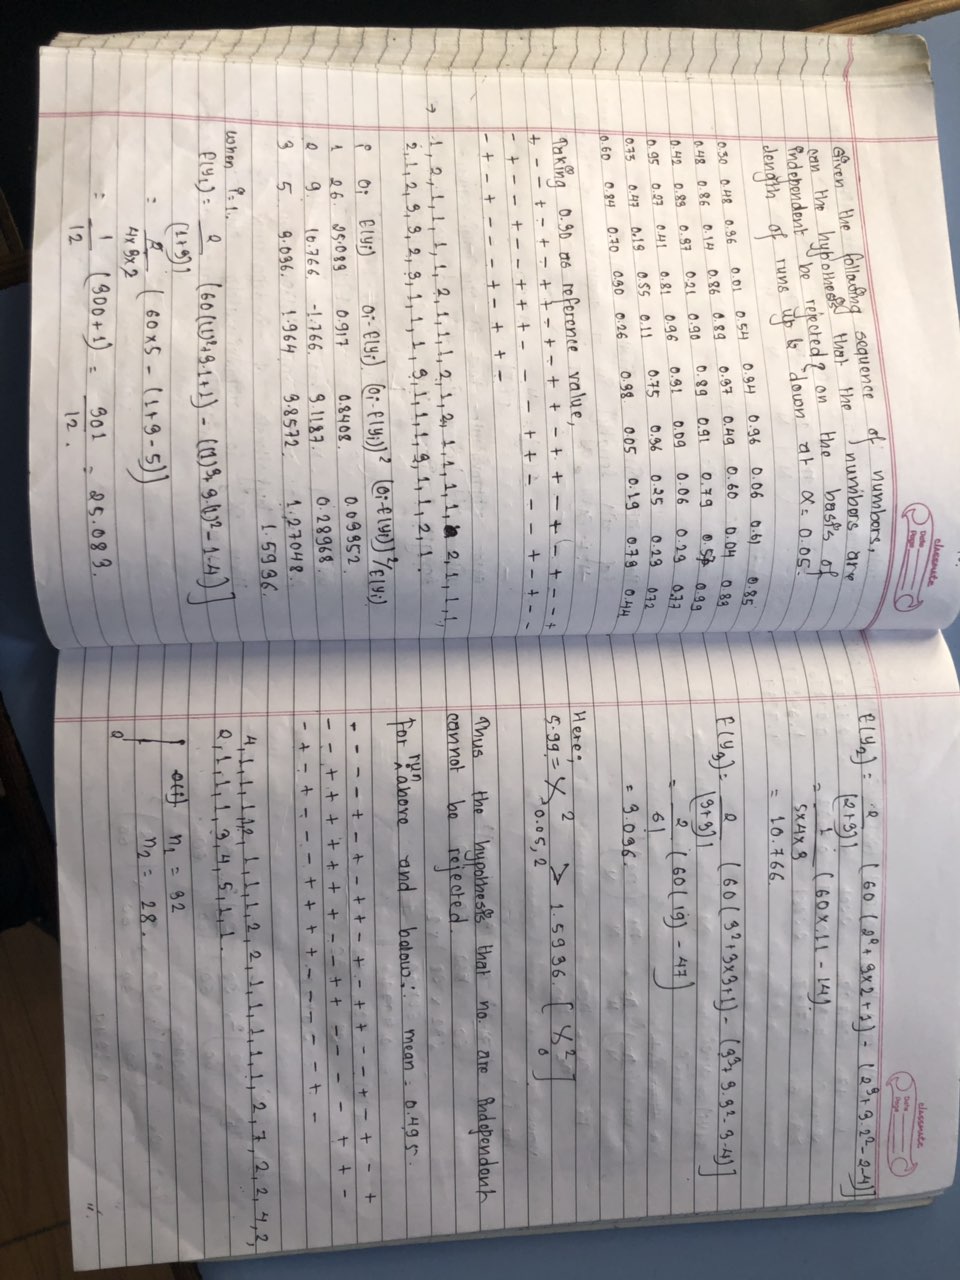 classmate
Date
Page
Given the following sequence of numbers,
can the hypothesis that the numbers are
independent be rejected? on the basis of
length of runs up & down at α = 0.05.
0.30 0.48 0.36 0.01 0.54 0.94 0.96 0.06 0.61 0.85
0.48 0.86 0.14 0.86 0.89 0.97 0.49 0.60 0.04 0.83
0.42 0.89 0.97 0.21 0.90 0.89 0.91 0.79 0.57 0.99
0.95 0.27 0.41 0.81 0.96 0.91 0.09 0.06 0.23 0.77
0.73 0.47 0.19 0.55 0.11 0.75 0.36 0.25 0.23 0.72
0.60 0.84 0.70 0.90 0.26 0.98 0.05 0.19 0.79 0.44
Taking 0.90 as reference value,
→ 1, 2, 1, 1, 1, 1, 2, 1, 1, 1, 2, 1, 2, 1, 1, 1, 1, 2, 1, 1, 1,
2, 1, 2, 3, 3, 2, 3, 1, 1, 1, 3, 1, 1, 1, 3, 1, 1, 2, 1.
i Oi E(Yi) Oi-E(Yi) (Oi-E(Yi))² (Oi-E(Yi))²/E(Yi)
1 26 25.083 0.917 0.8408 0.03352
2 9 10.766 -1.766 3.1187 0.28968
3 5 3.036 1.964 3.8572 1.27048
1.5936
When i=1.
E(Y₁) = 2/(1+3)! [60(1)²+3.1+1) - ((1)³+3(1)²-1-4)]
= 2/4×3×2 (60×5 - (1+3-5))
= 1/12 (300+1) = 301/12 = 25.083.
classmate
Date
Page
E(Y₂) = 2/(2+3)! [60(2²+3×2+1) - (2³+3.2²-2-4)]
= 1/5×4×3 (60×11 - 14)
= 10.766
E(Y₃) = 2/(3+3)! [60(3²+3×3+1) - (3³+3.3²-3-4)]
= 2/6! (60(19) - 47)
= 3.036.
Here;
5.99 = χ²0.05,2 > 1.5936. [χ²₀]
Thus the hypothesis that no. are independent
cannot be rejected.
For run above and below: mean = 0.495.
4, 1, 1, 1, 12, 1, 1, 1, 2, 2, 1, 1, 1, 1, 1, 2, 7, 2, 2, 4, 2,
2, 1, 1, 1, 3, 4, 5, 1, 1.
n₁ = 32
n₂ = 28.